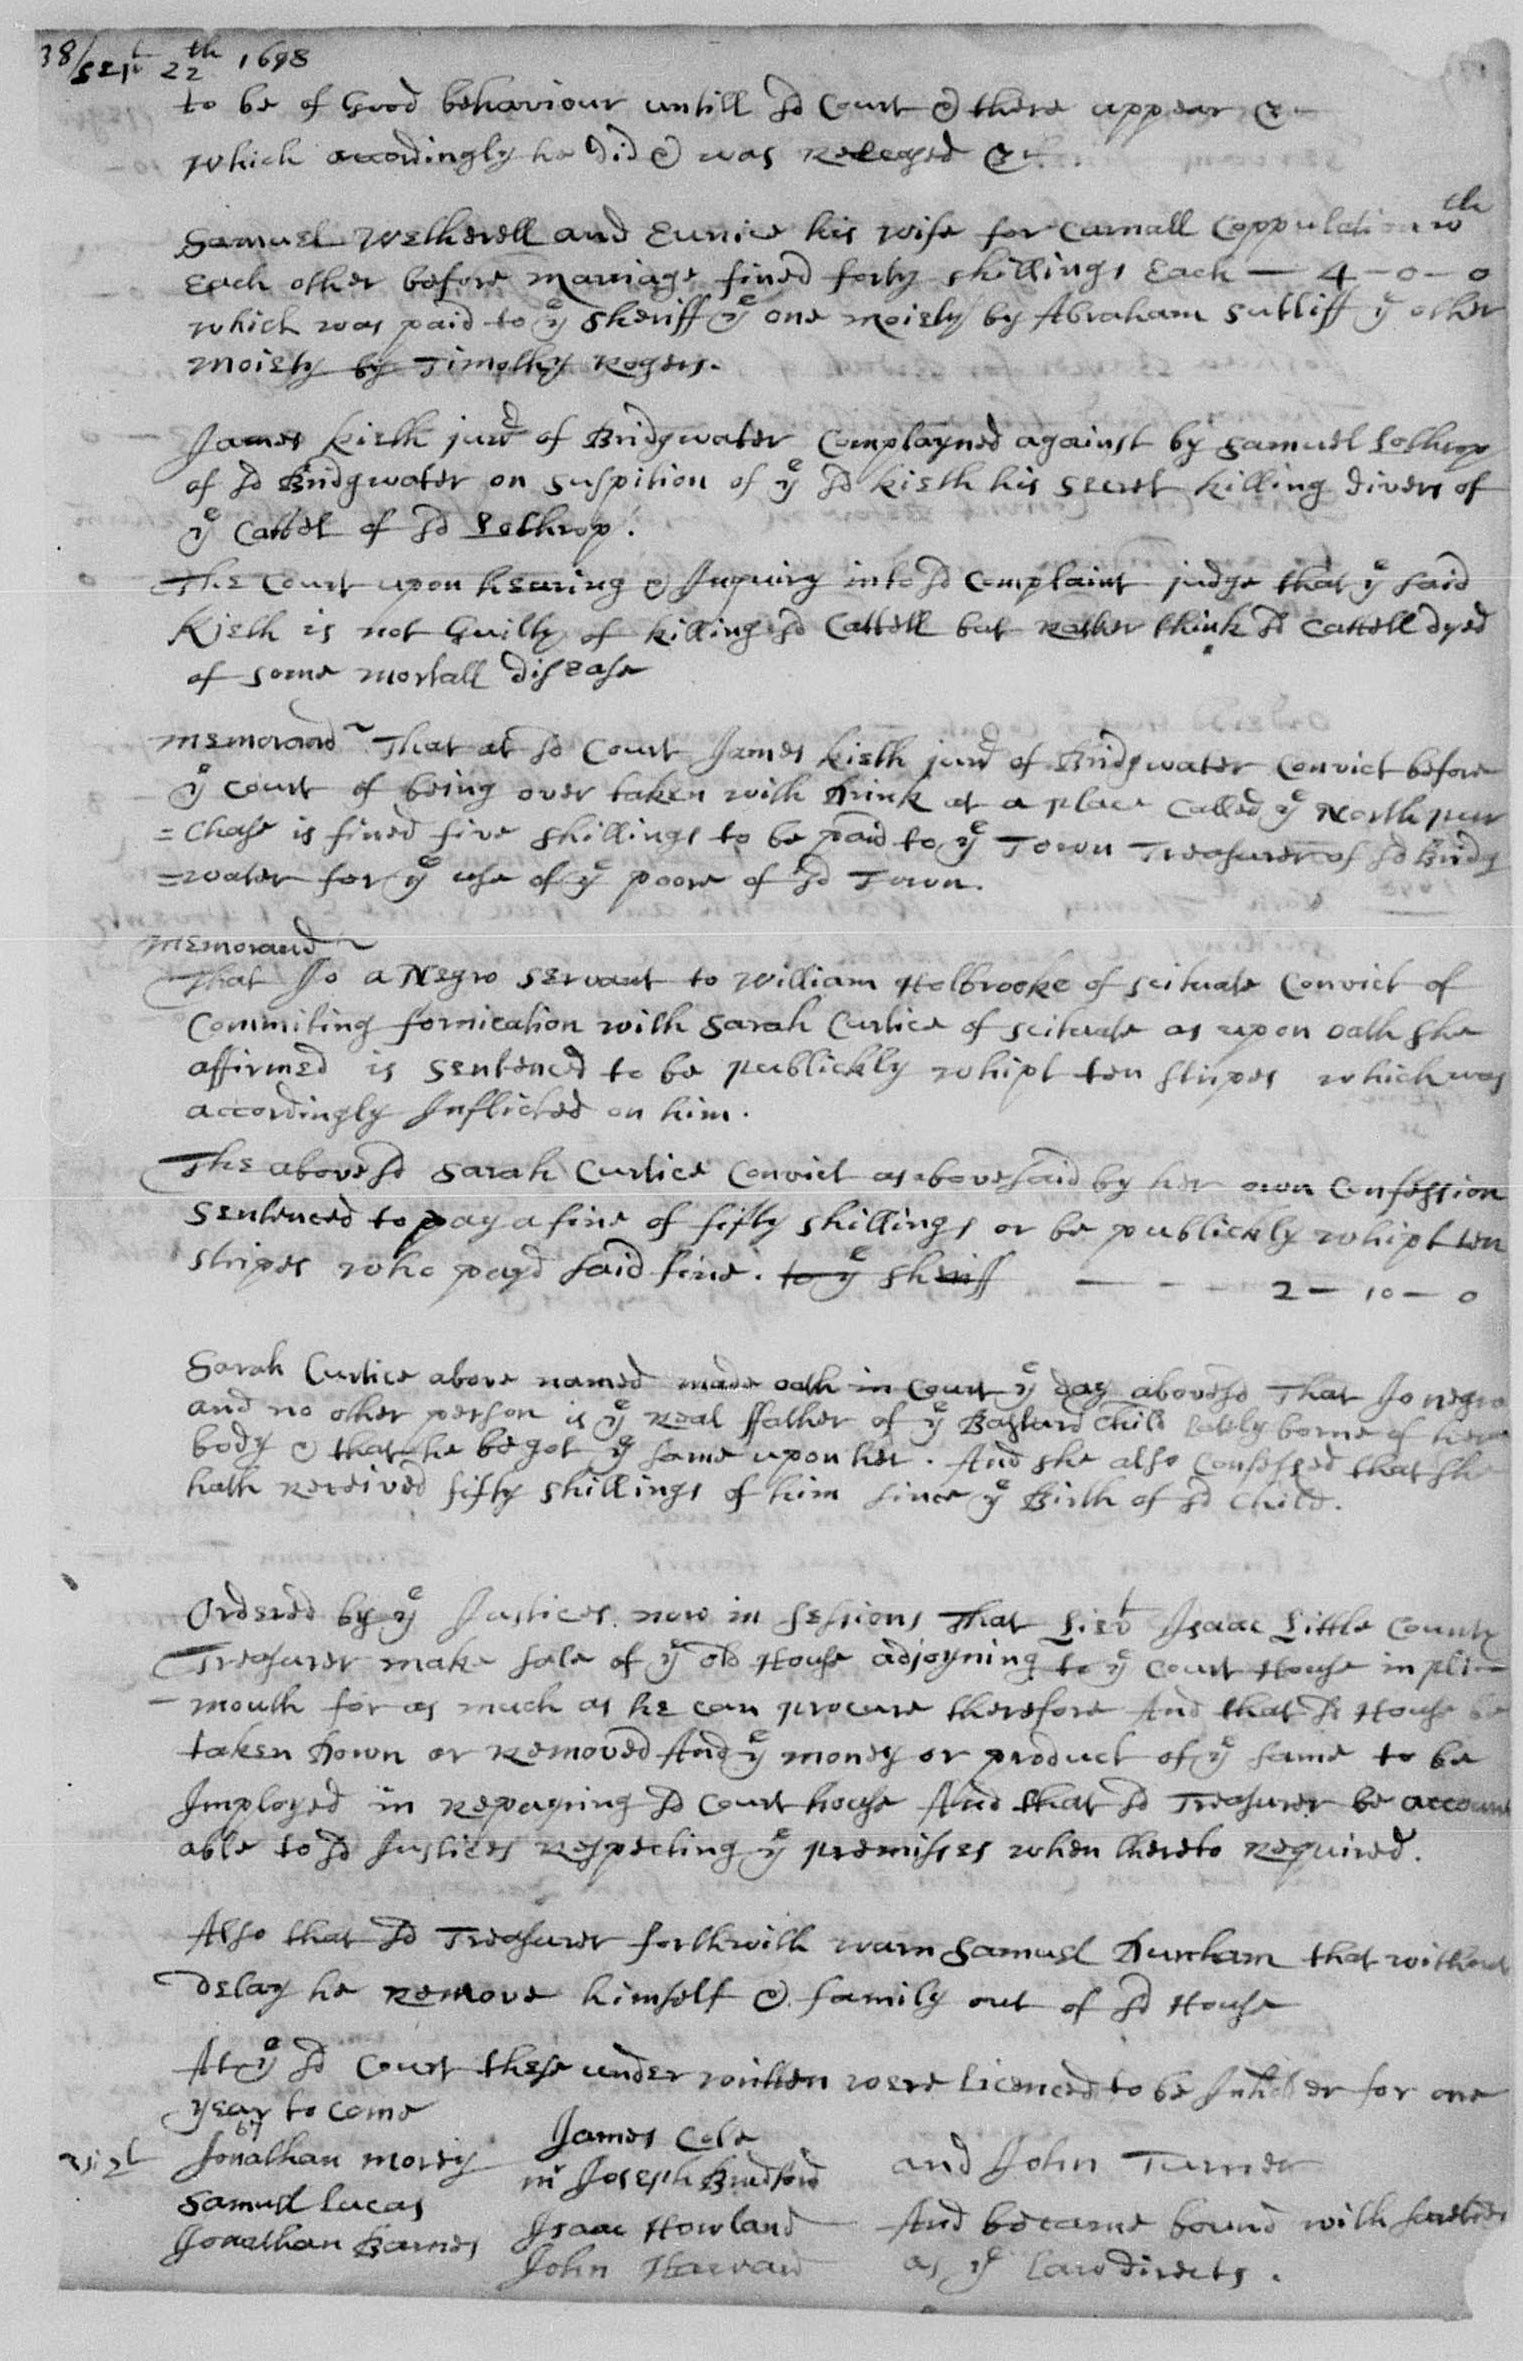 38/ Sept 22th 1698
to be of Good behaviour untill sd Court & there appear &c
which accordingly he did & was Released &c
Samuel Wetherell and Eunice his wife for Carnall Coppulation wth
Each other before Marriage fined forty shillings Each — 4 – 0 – 0
which was paid to ye Sheriff ye one Moiety by Abraham Sutliff ye other
Moiety by Timothy Rogers.
James Kieth junr of Bridgwater Complayned against by Samuel Lothrop
of sd Bridgwater on Suspition of ye sd Kieth his Secret killing divers of
ye Cattel of sd Lothrop.
The Court upon hearing & Inquiry into sd Complaint judge that ye said
Kieth is not Guilty of killing sd Cattell but Rather think sd Cattell dyed
of some mortall disease
Memorand That at sd Court James Kieth junr of Bridgwater Convict before
ye Court of being over taken with Drink at a place Called ye North pur
=Chase is fined five shillings to be paid to ye Town Treasurer of sd Bridg
=water for ye use of ye poore of sd Town.
Memorand
That Jo a Negro Servant to William Holbrooke of Scituate Convict of
Commiting fornication with Sarah Curtice of Scituate as upon oath she
affirmed is Sentenced to be publickly whipt ten stripes which was
accordingly Inflicted on him.
The abovesd Sarah Curtice Convict as abovesaid by her own Confession
Sentenced to pay a fine of fifty shillings or be publickly whipt ten
stripes who payd said fine. to ye Sheriff — - - 2 – 10 – 0
Sarah Curtice above named made oath in Court ye day abovesd That Jo negro
and no other person is ye Real ffather of ye Bastard Child lately borne of her
body & that he begot ye same upon her. And she also Confessed that she
hath Received fifty shillings of him since ye Birth of sd Child.
Ordered by ye Justices now in Sessions That Lievt Isaac Little County
Treasurer make sale of ye old House adjoyning to ye Court House in pli–
–mouth for as much as he can procure therefore And that sd House be
taken Down or Removed And ye money or product of ye same to be
Imployed in Repayring sd Court house And that sd Treasurer be account
able to sd Justices Respecting ye premisses when thereto Required.
Also that sd Treasurer forthwith warn Samuel Dunham that without
delay he Remove himself & family out of sd House
At ye sd Court these under written were Licenced to be Inholder for one
year to come
Jonathan Morey James Cole and John Turner
Samuel Lucas mr Joseph Bradford
Jonathan Barnes Isaac Howland And became bound with sureties
John as ye Law directs.